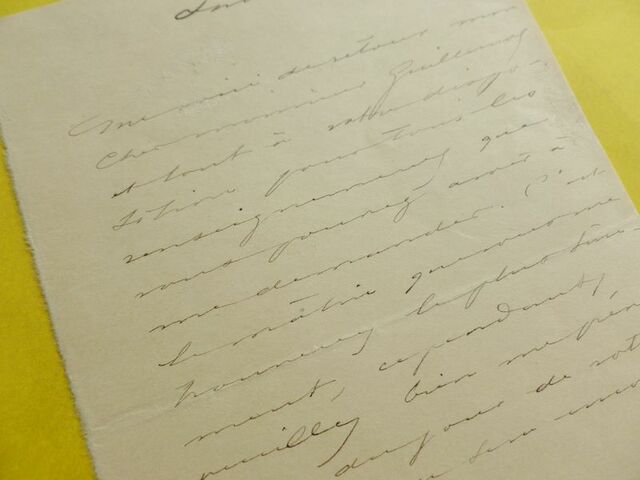 Me voici de retour mon
Cher monsieur Guillemot
et tout à votre dispo-
sition pour tous les
renseignements que
vous pourrez avoir à
me demander. C'est
le matin que vous me
trouverez le plus sûre-
ment, cependant,
veuillez bien me
du jour de